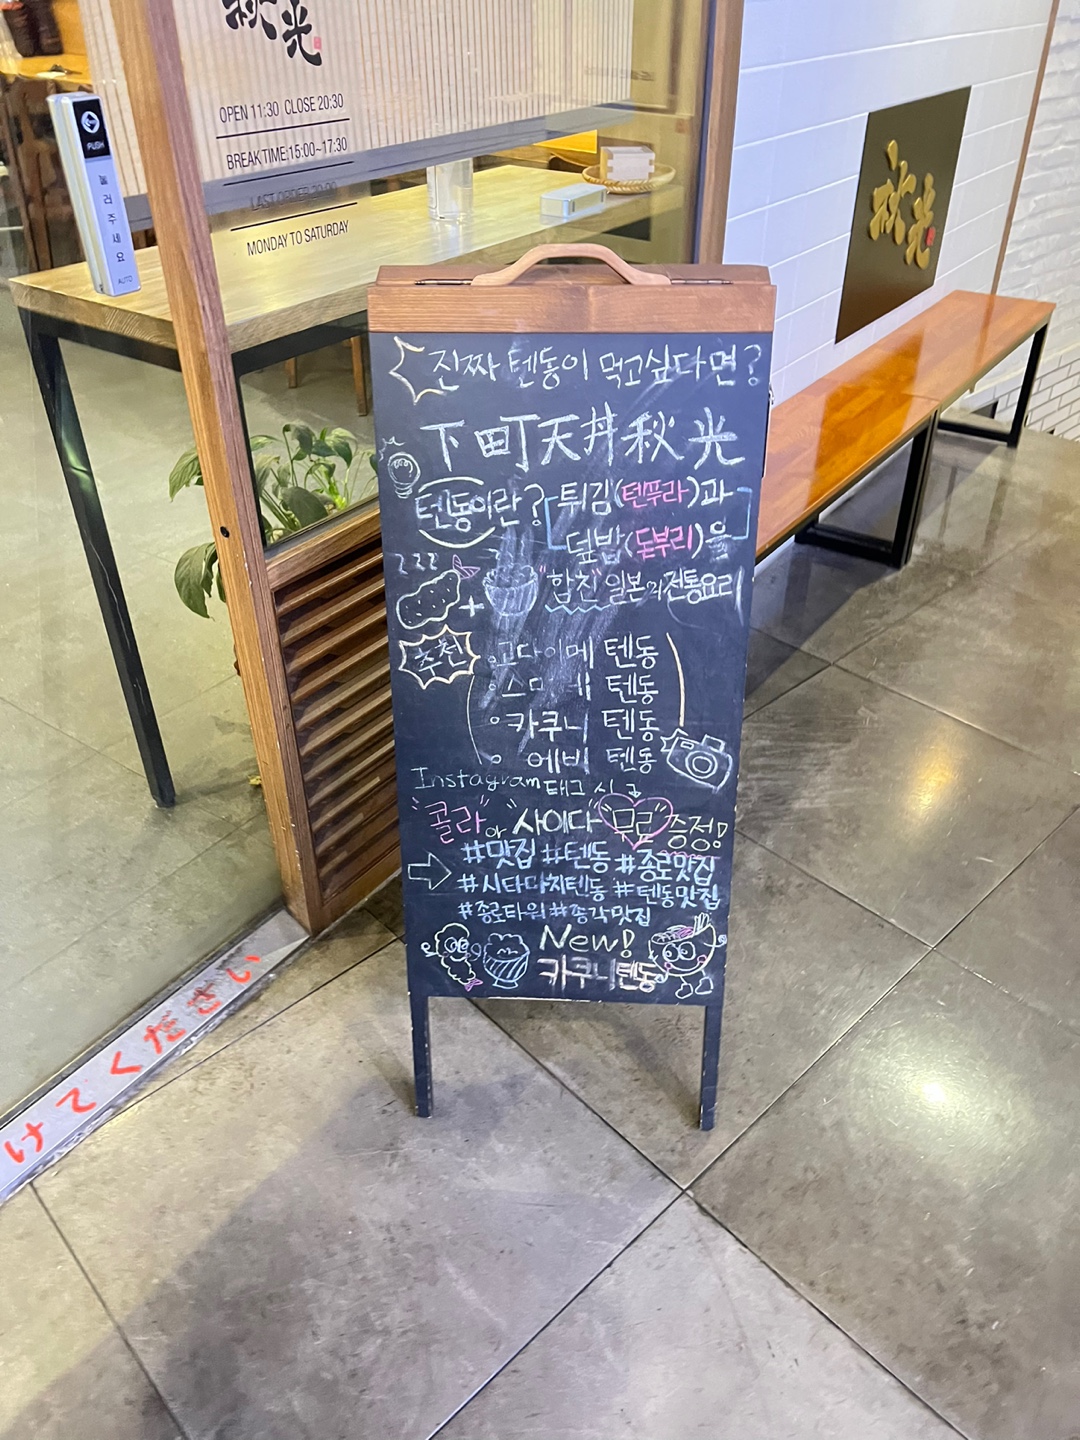 秋光
OPEN 11:30 CLOSE 20:30
BREAK TIME 15:00~17:30
LAST ORDER 20:00
MONDAY TO SATURDAY
PUSH
눌러주세요
AUTO
秋光
진짜 텐동이 먹고싶다면?
下町天丼秋光
텐동이란? 튀김(텐푸라)과
덮밥(돈부리)을
"합친" 일본의 전통요리
추천
고다이메 텐동
텐동
카쿠니 텐동
에비 텐동
Instagram 태그 시
"콜라" or "사이다" "무료" 증정!
#맛집 #텐동 #종로맛집
#시타마치텐동 #텐동맛집
#종로타워 #종각맛집
New!
카쿠니텐동
けてください